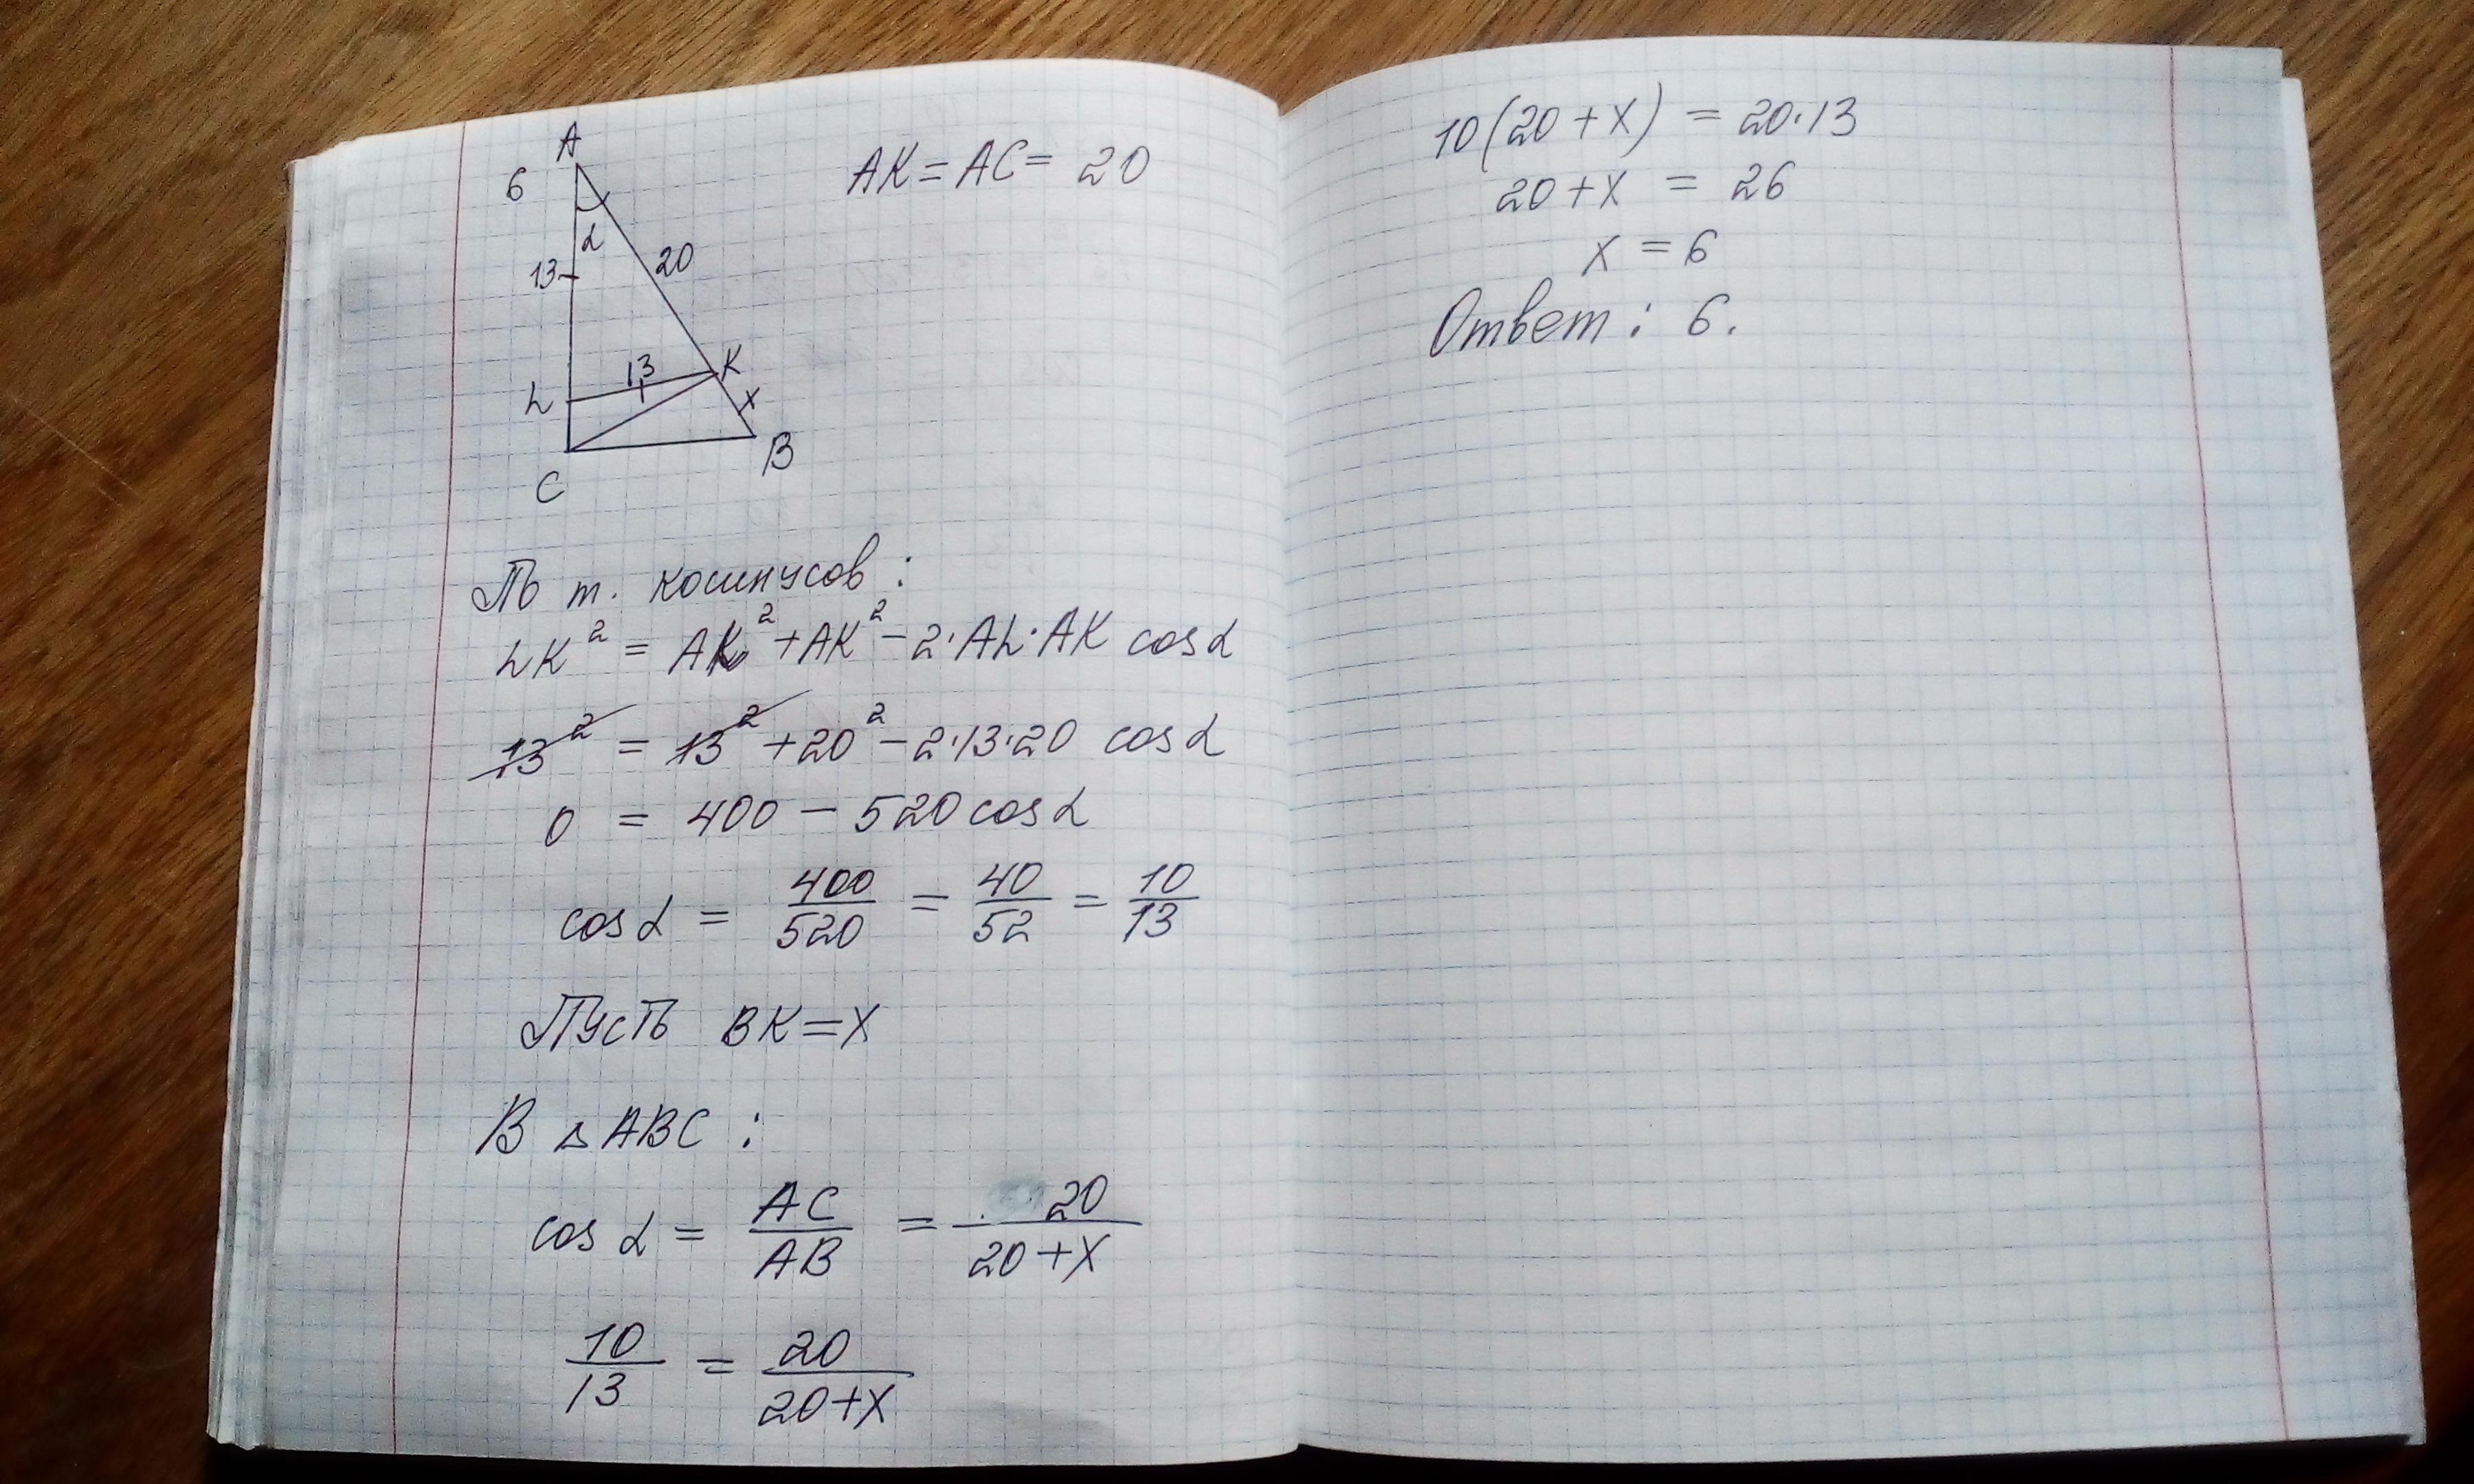 A
6
AK = AC = 20
α
13
20
13
K
L
x
B
C
По т. косинусов :
LK² = AL² + AK² - 2·AL·AK cos α
13² = 13² + 20² - 2·13·20 cos α
0 = 400 - 520 cos α
cos α = 400/520 = 40/52 = 10/13
Пусть BK = x
В △ABC :
cos α = AC/AB = 20/20+x
10/13 = 20/20+x
10(20+x) = 20·13
20+x = 26
x = 6
Ответ : 6.